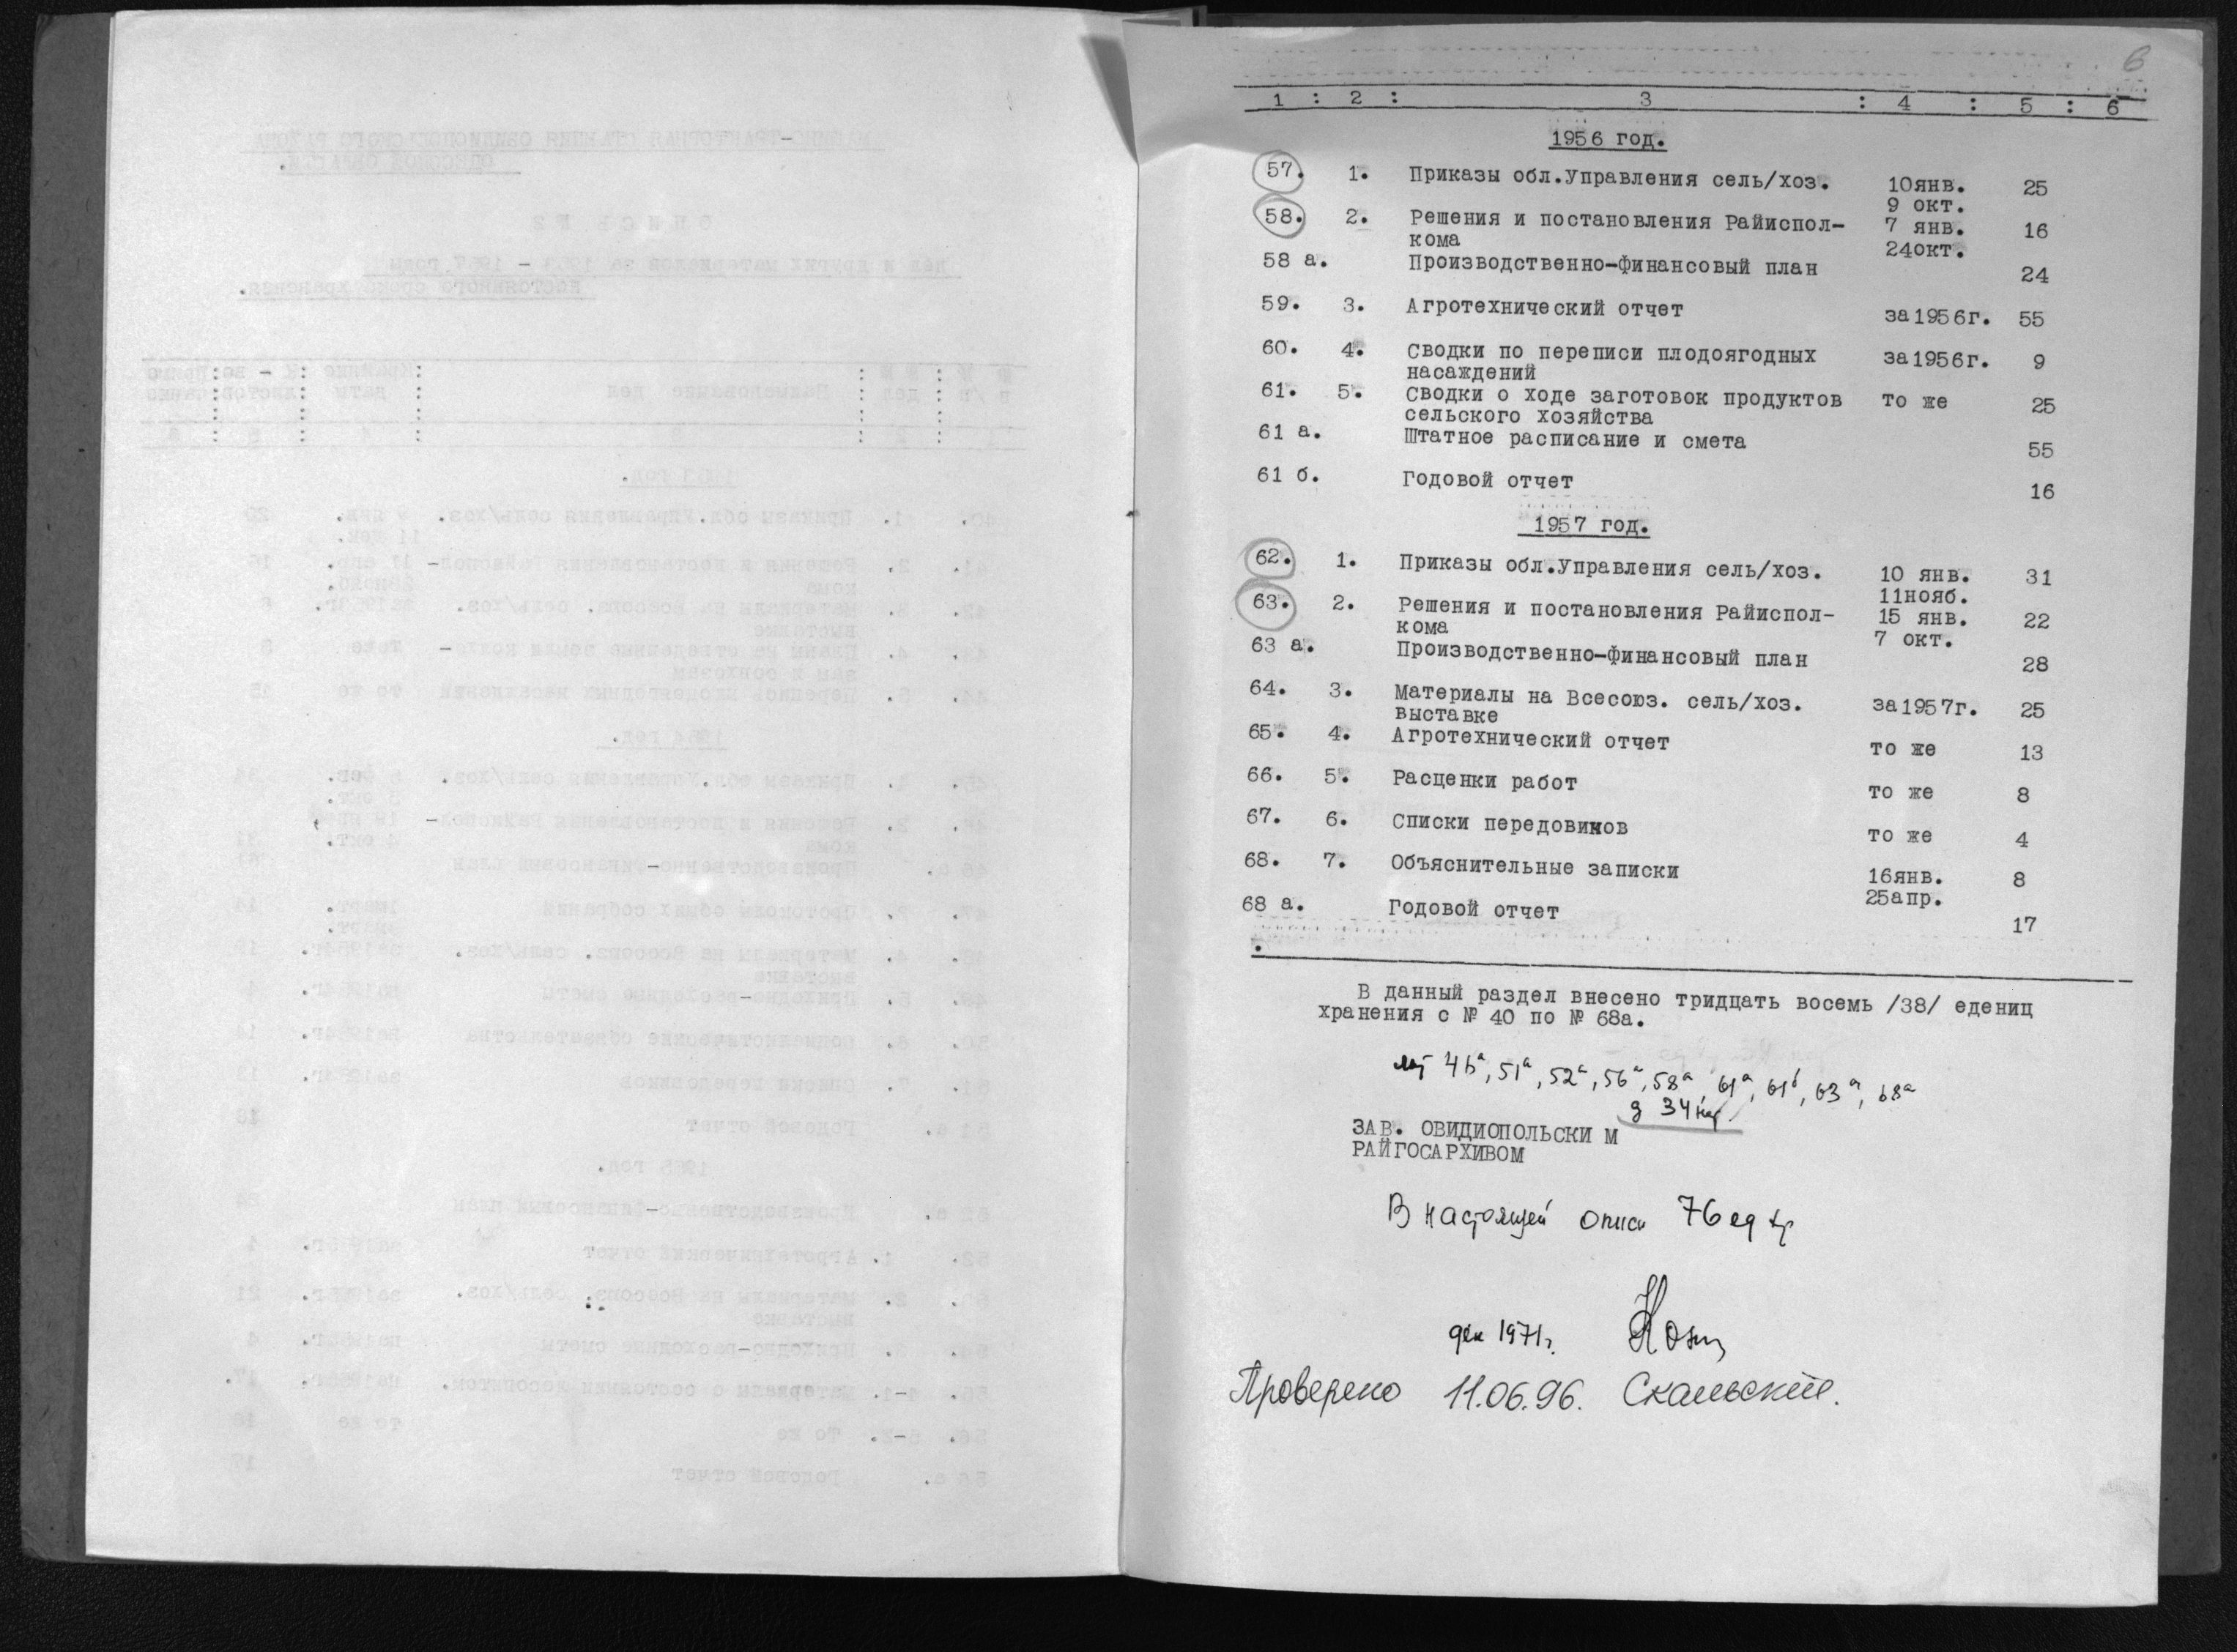 6
1 : 2 : 3 : 4 : 5 : 6
1956 год.
57. 1. Приказы обл.Управления сель/хоз. 10янв. 25
9 окт.
58. 2. Решения и постановления Райиспол- 7 янв. 16
кома 24окт.
58 а. Производственно-финансовый план 24
59. 3. Агротехнический отчет за1956г. 55
60. 4. Сводки по переписи плодоягодных за1956г. 9
насаждений
61. 5. Сводки о ходе заготовок продуктов то же 25
сельского хозяйства
61 а. Штатное расписание и смета 55
61 б. Годовой отчет 16
1957 год.
62. 1. Приказы обл.Управления сель/хоз. 10 янв. 31
11нояб.
63. 2. Решения и постановления Райиспол- 15 янв. 22
кома 7 окт.
63 а. Производственно-финансовый план 28
64. 3. Материалы на Всесоюз. сель/хоз. за1957г. 25
выставке
65. 4. Агротехнический отчет то же 13
66. 5. Расценки работ то же 8
67. 6. Списки передовиков то же 4
68. 7. Объяснительные записки 16янв. 8
25апр.
68 а. Годовой отчет 17
В данный раздел внесено тридцать восемь /38/ едениц
хранения с № 40 по № 68а.
46а, 51а, 52а, 56а, 58а, 61а, 61б, 63а, 68а
ЗАВ. ОВИДИОПОЛЬСКИ М
РАЙГОСАРХИВОМ
В настоящей описи 76 ед хр
дек 1971г.
Проверено 11.06.96. Скальский.